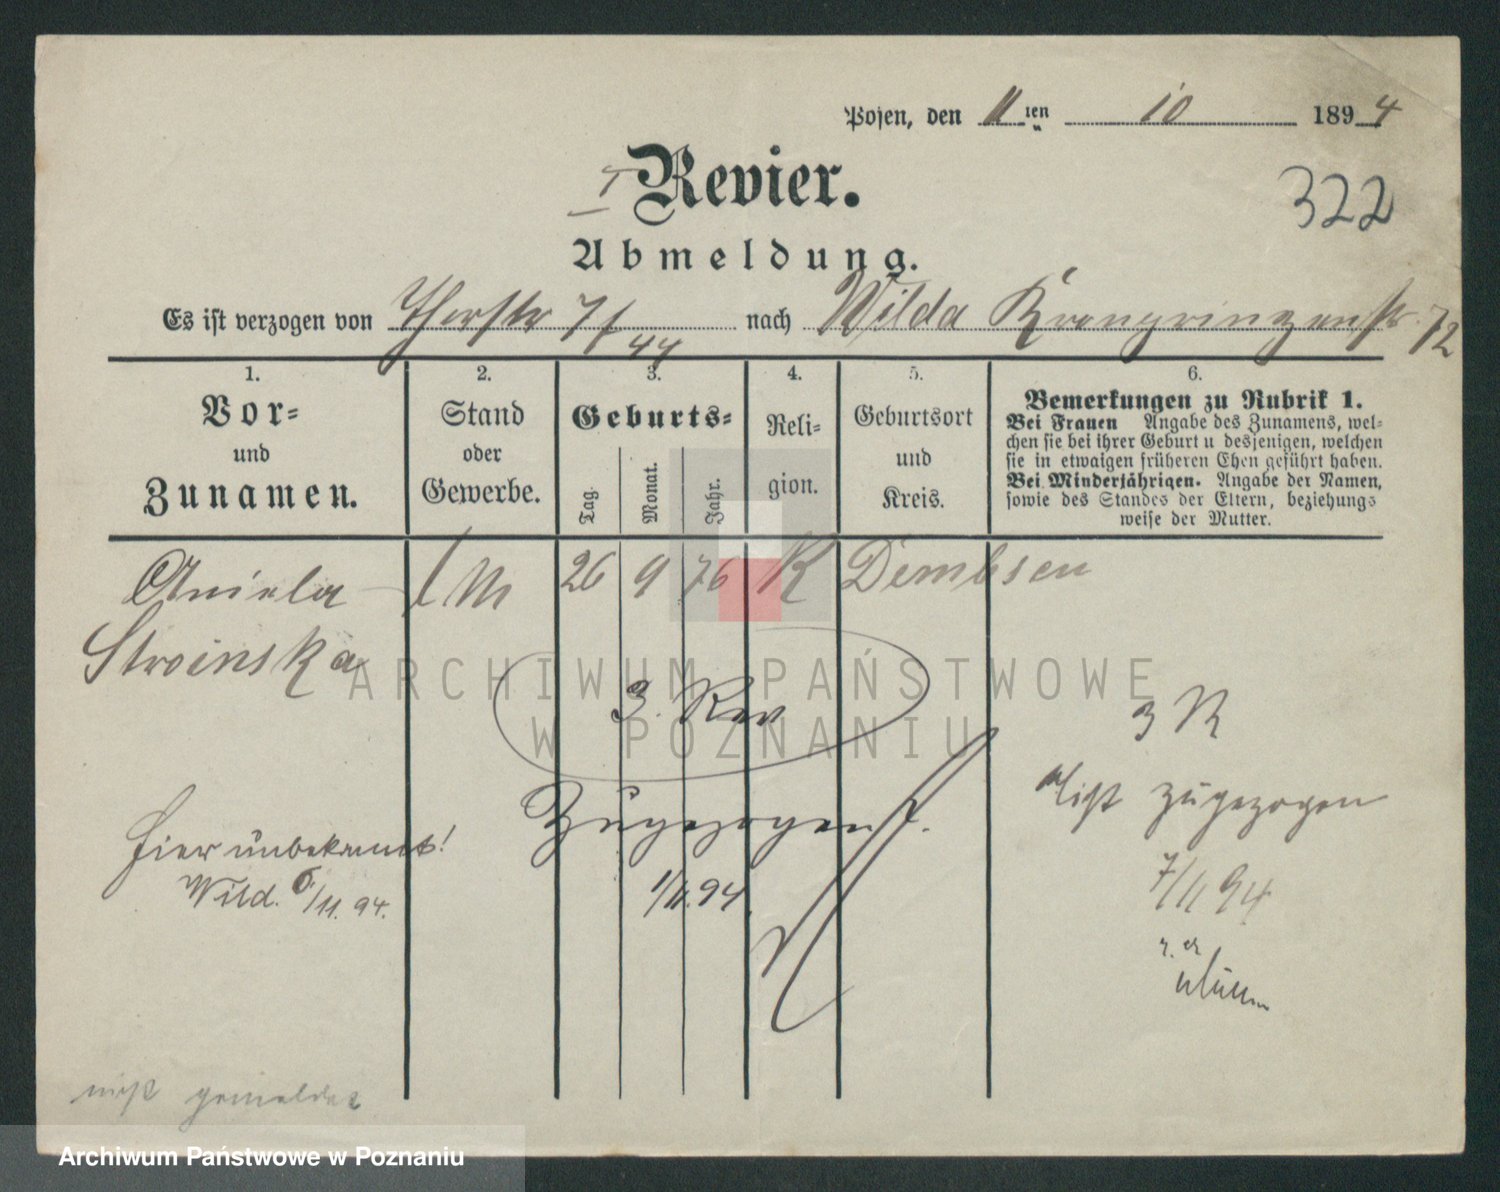 Posen, den 11ten 10 1894
I Revier.
322
Abmeldung.
Es ist verzogen von Thorstr 7/44 nach Wilda Kronprinzenstr. 72
1.
Vor-
und
Zunamen.
2.
Stand
oder
Gewerbe.
3.
Geburts-
Tag.
Monat.
Jahr.
4.
Reli-
gion.
5.
Geburtsort
und
Kreis.
6.
Bemerkungen zu Rubrik 1.
Bei Frauen Angabe des Zunamens, wel-
chen sie bei ihrer Geburt u desjenigen, welchen
sie in etwaigen früheren Ehen geführt haben.
Bei Minderjährigen. Angabe der Namen,
sowie des Standes der Eltern, beziehungs
weise der Mutter.
Aniela M 26 9 76 K Dembsen
Stroinska
3. Rev
3 R
Zugezogen
1/11.94.
Nicht zugezogen
7/11 94
hier unbekannt!
Wild. 6/11. 94.
nicht gemeldet
ARCHIWUM PAŃSTWOWE
W POZNANIU
Archiwum Państwowe w Poznaniu